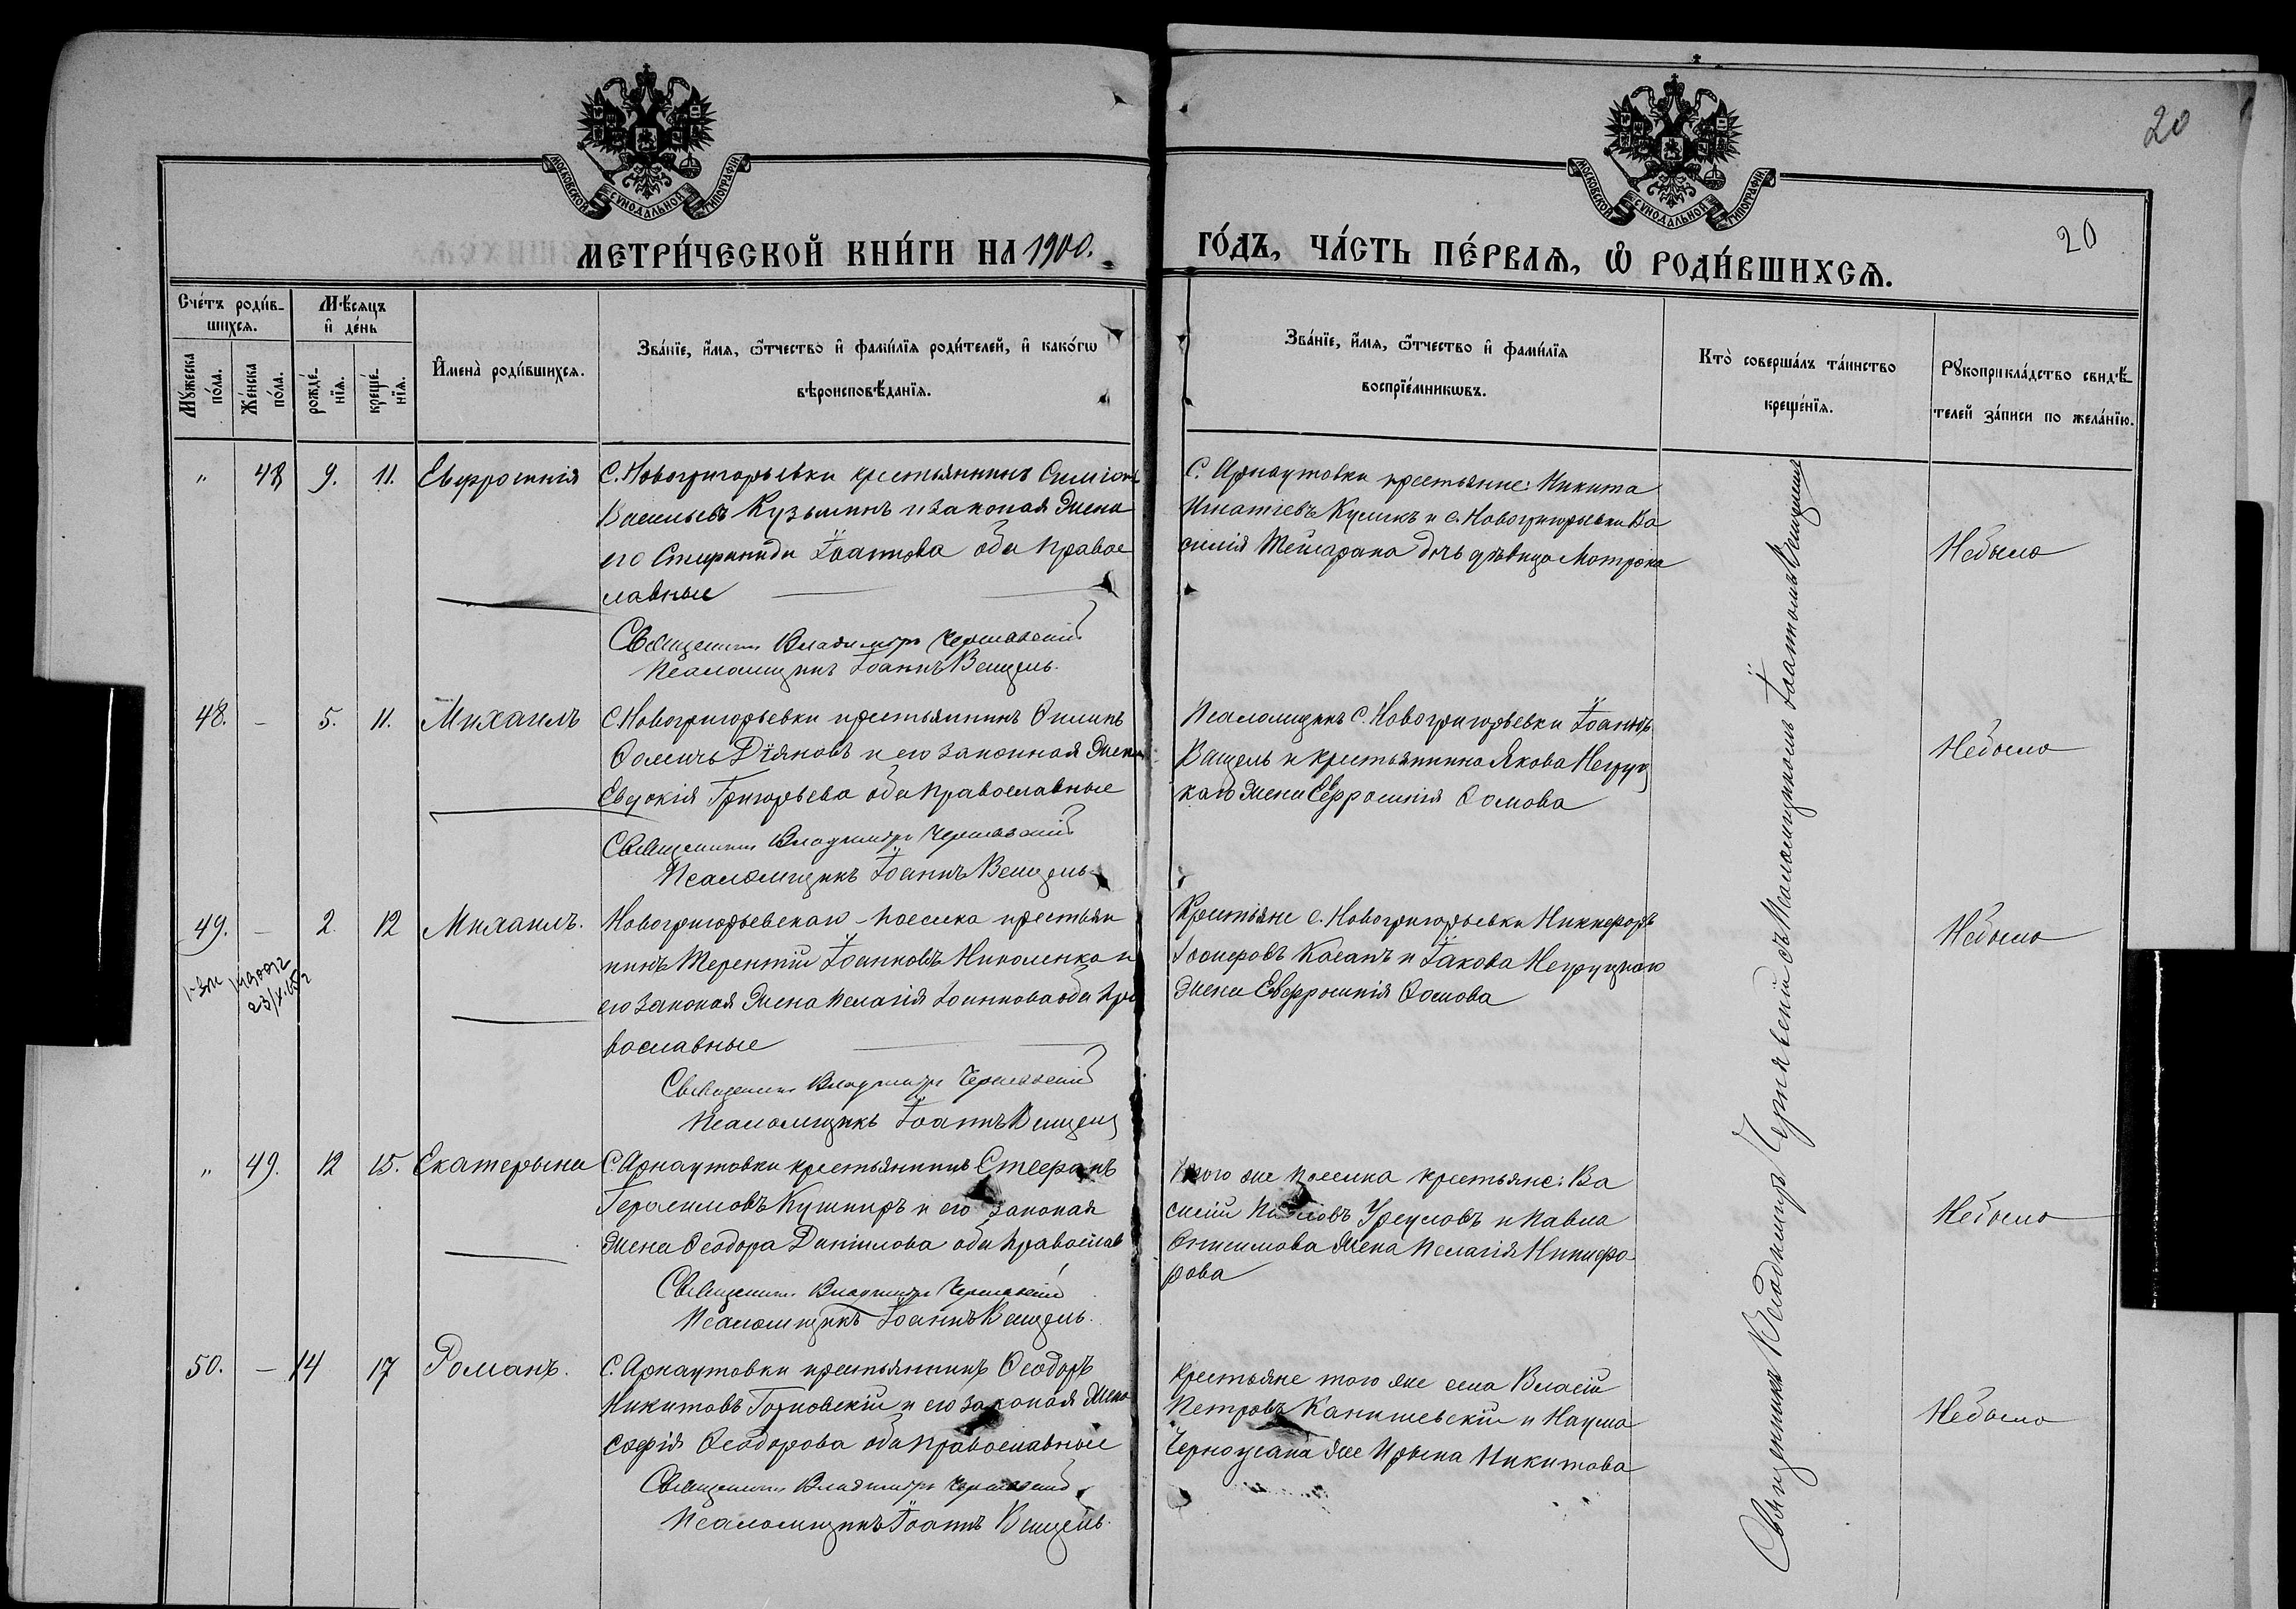 20
МОСКОВСКОЙ СѴНОДАЛЬНОЙ ТИПОГРАФІИ
МОСКОВСКОЙ СѴНОДАЛЬНОЙ ТИПОГРАФІИ
МЕТРИ́ЧЕСКОЙ КНИ́ГИ НА 1900.
ГО́ДЪ, ЧА́СТЬ ПЕ́РВАѦ, Ѡ҆ РОДИ́ВШИХСѦ.
20
Сче́тъ роди́в-
шихсѧ.
Мѣ́сѧцъ
и҆ де́нь
Мꙋ́жеска
по́ла.
Же́нска
по́ла.
рожде́-
нїѧ.
креще́-
нїѧ.
И҆мена̀ роди́вшихсѧ.
Зва́нїе, и҆́мѧ, ѻ҆́тчество и҆ фами́лїѧ роди́телей, и҆ како́гѡ
вѣроисповѣ́данїѧ.
Зва́нїе, и҆́мѧ, ѻ҆́тчество и҆ фами́лїѧ
воспрїе́мникѡвъ.
Кто̀ соверша́лъ та́инство
креще́нїѧ.
Рꙋкоприкла́дство свидѣ́-
телей за́писи по жела́нїю.
" 48 9. 11. Евфросинія
С. Новогригорьевки крестьянинъ
Васильевъ Кузьминъ и законая жена
его Іоаннова оба право
славные
Священникъ Владиміръ Чернявскій
Псаломщикъ Іоаннъ Венцель.
С. Арнаутовки крестьяне: Никита
Игнатіевъ Куликъ и с. Новогригорьевки Ва
силія дочь дѣвица Матрона
Небыло
48. - 5. 11. Михаилъ
С. Новогригорьевки крестьянинъ
Ѳомичъ Діяновъ и его законная жена
Евдокія Григорьева оба православные
Священникъ Владиміръ Чернявскій
Псаломщикъ Іоаннъ Венцель
Псаломщикъ С. Новогригорьевки Іоаннъ
Венцель и крестьянина Якова Негруц
каго жена Евфросинія Ѳомова
Небыло
49. - 2 12 Михаилъ.
Новогригорьевскаго поселка крестьян
нинъ Терентій Іоанновъ Николенко и
его законая жена Пелагія Іоаннова оба пра
вославные
Священникъ Владиміръ Чернявскій
Псаломщикъ Іоаннъ Венцель
Крестьяне с. Новогригорьевки Никифоръ
Іосифовъ Касапъ и Іакова Негруцкаго
жена Евфросинія Ѳомова
Небыло
" 49. 12 15. Екатерына
С. Арнаутовки крестьянинъ Стефанъ
Герасимовъ Кушниръ и его законая
жена Ѳеодора Даніилова оба православ
Священникъ Владиміръ Чернявскій
Псаломщикъ Іоаннъ Венцель.
Того же поселка крестьяне: Ва
силій Павловъ Урсуловъ и Павла
Онисимова жена Пелагія Никифо
рова
Небыло
50. - 14 17 Романъ.
С. Арнаутовки крестьянинъ Ѳеодоръ
Никитовъ и его законая жена
Софія Ѳеодорова оба православные
Священникъ Владиміръ Чернявскій
Псаломщикъ Іоаннъ Венцель.
Крестьяне того же села Власій
Петровъ Канишевскій и Наума
Черноусана же Ирына Никитова
Небыло
Священникъ Владиміръ Чернявскій съ Псаломщикомъ Іоанномъ Венцелемъ